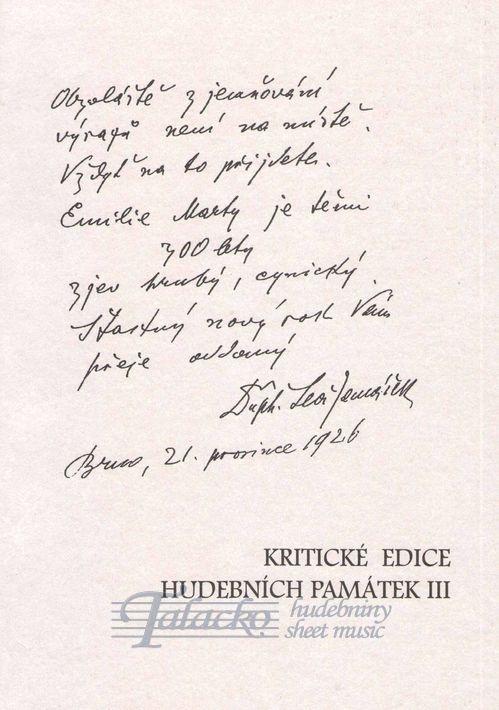 Obzvláště zjemňování
výrazů není na místě.
Vždyť na to přijdete.
Emilie Marty je těmi
300 lety
zjev hrubý, cynický.
Šťastný nový rok Vám
přeje oddaný
Drph. Leoš Janáček
Brno, 21. prosince 1926
KRITICKÉ EDICE
HUDEBNÍCH PAMÁTEK III
Talacko
hudebniny
sheet music